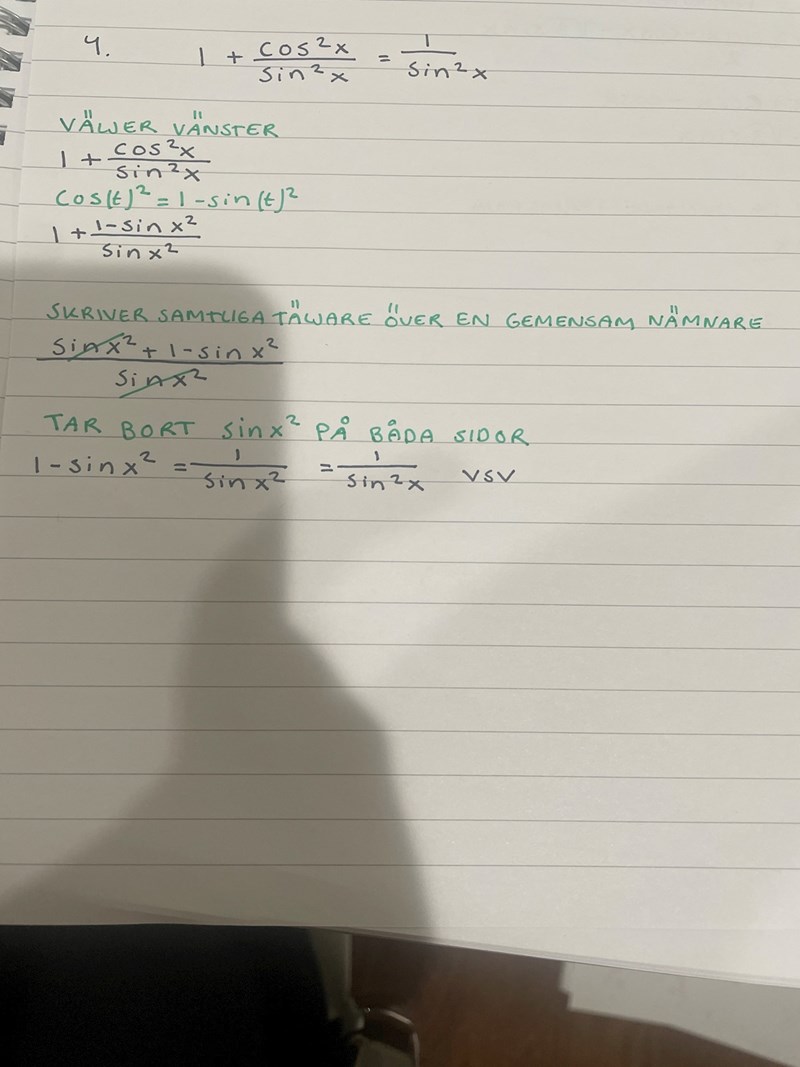 4. 1 + cos²x/sin²x = 1/sin²x
VÄLJER VÄNSTER
1 + cos²x/sin²x
cos(t)² = 1-sin(t)²
1 + 1-sin x²/sin x²
SKRIVER SAMTLIGA TÄLJARE ÖVER EN GEMENSAM NÄMNARE
sinx² + 1-sin x²/sinx²
TAR BORT sinx² PÅ BÅDA SIDOR
1-sin x² = 1/sin x² = 1/sin²x VSV